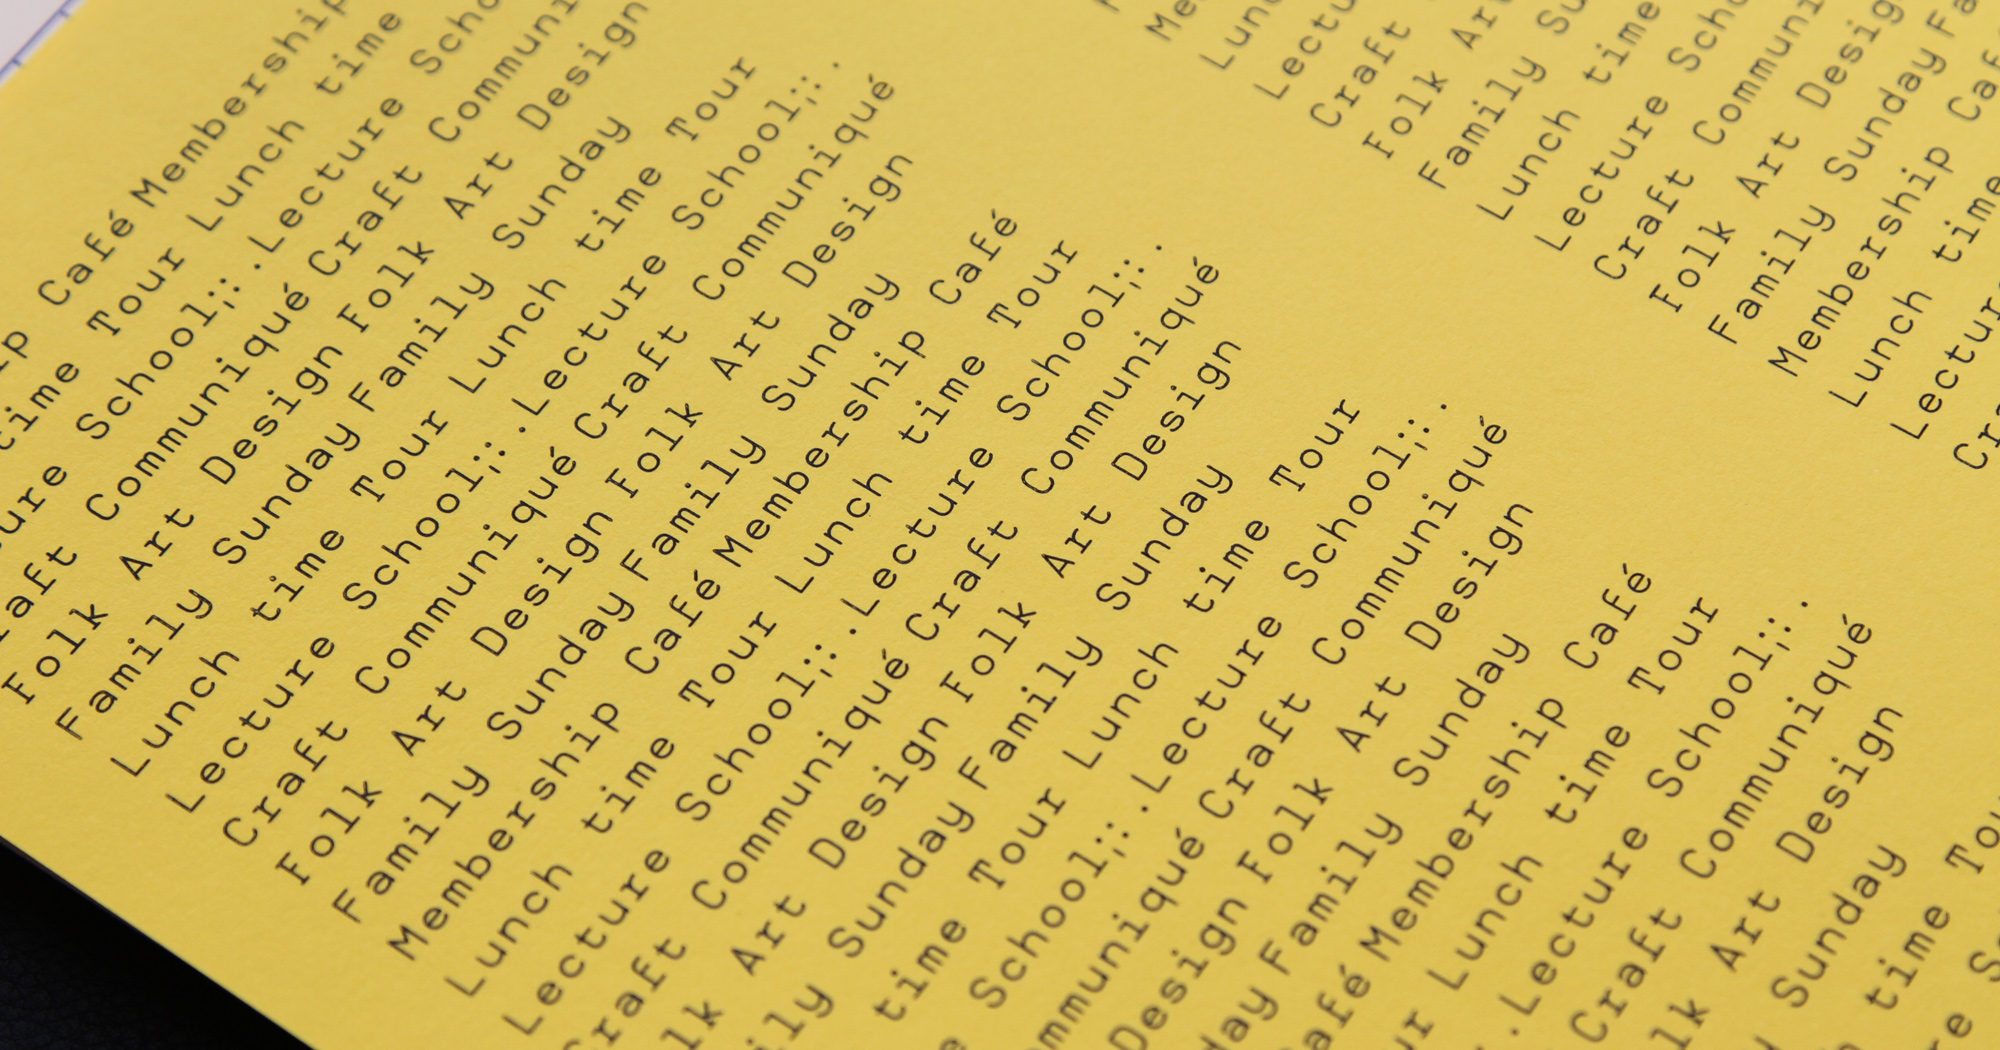 Café Membership
time Tour Lunch time
ure School;:.Lecture Scho
raft Communiqué Craft Communi
Folk Art Design Folk Art Design
Family Sunday Family Sunday
Lunch time Tour Lunch time Tour
Lecture School;:.Lecture School;:.
Craft Communiqué Craft Communiqué
Folk Art Design Folk Art Design
Family Sunday Family Sunday
Membership Café Membership Café
Lunch time Tour Lunch time Tour
Lecture School;:.Lecture School;:.
Craft Communiqué Craft Communiqué
lk Art Design Folk Art Design
ily Sunday Family Sunday
time Tour Lunch time Tour
e School;:.Lecture School;:.
mmuniqué Craft Communiqué
Design Folk Art Design
day Family Sunday
afé Membership Café
ur Lunch time Tour
.Lecture School;:.
Craft Communiqué
lk Art Design
Sunday
time Tou
re Sc
Me
Lun
Lectu
Craft
Folk Ar
Family Su
Lunch time
Lecture Scho
Craft Communi
Folk Art Desig
Family Sunday Fa
Membership Caf
Lunch time
Lectur
Cra